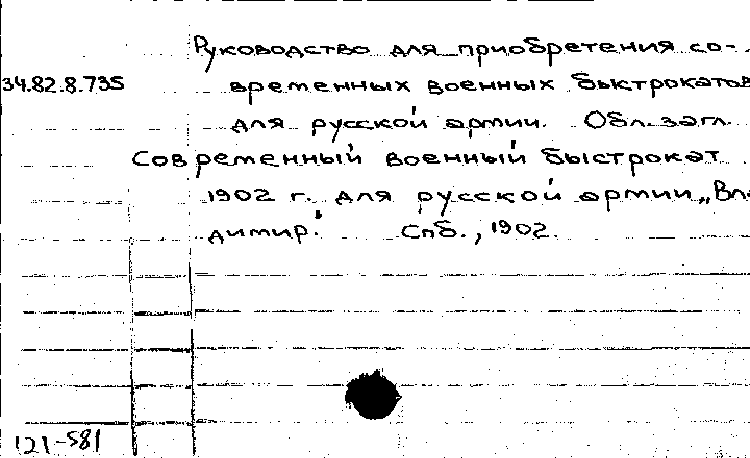 Руководство для приобретения со-
34.82.8.735 временных военных быстрокатов
для русской армии. Обл. загл.
Современный военный быстрокат
1902 г. для русской армии „Вла
димир". Спб., 1902.
121-581